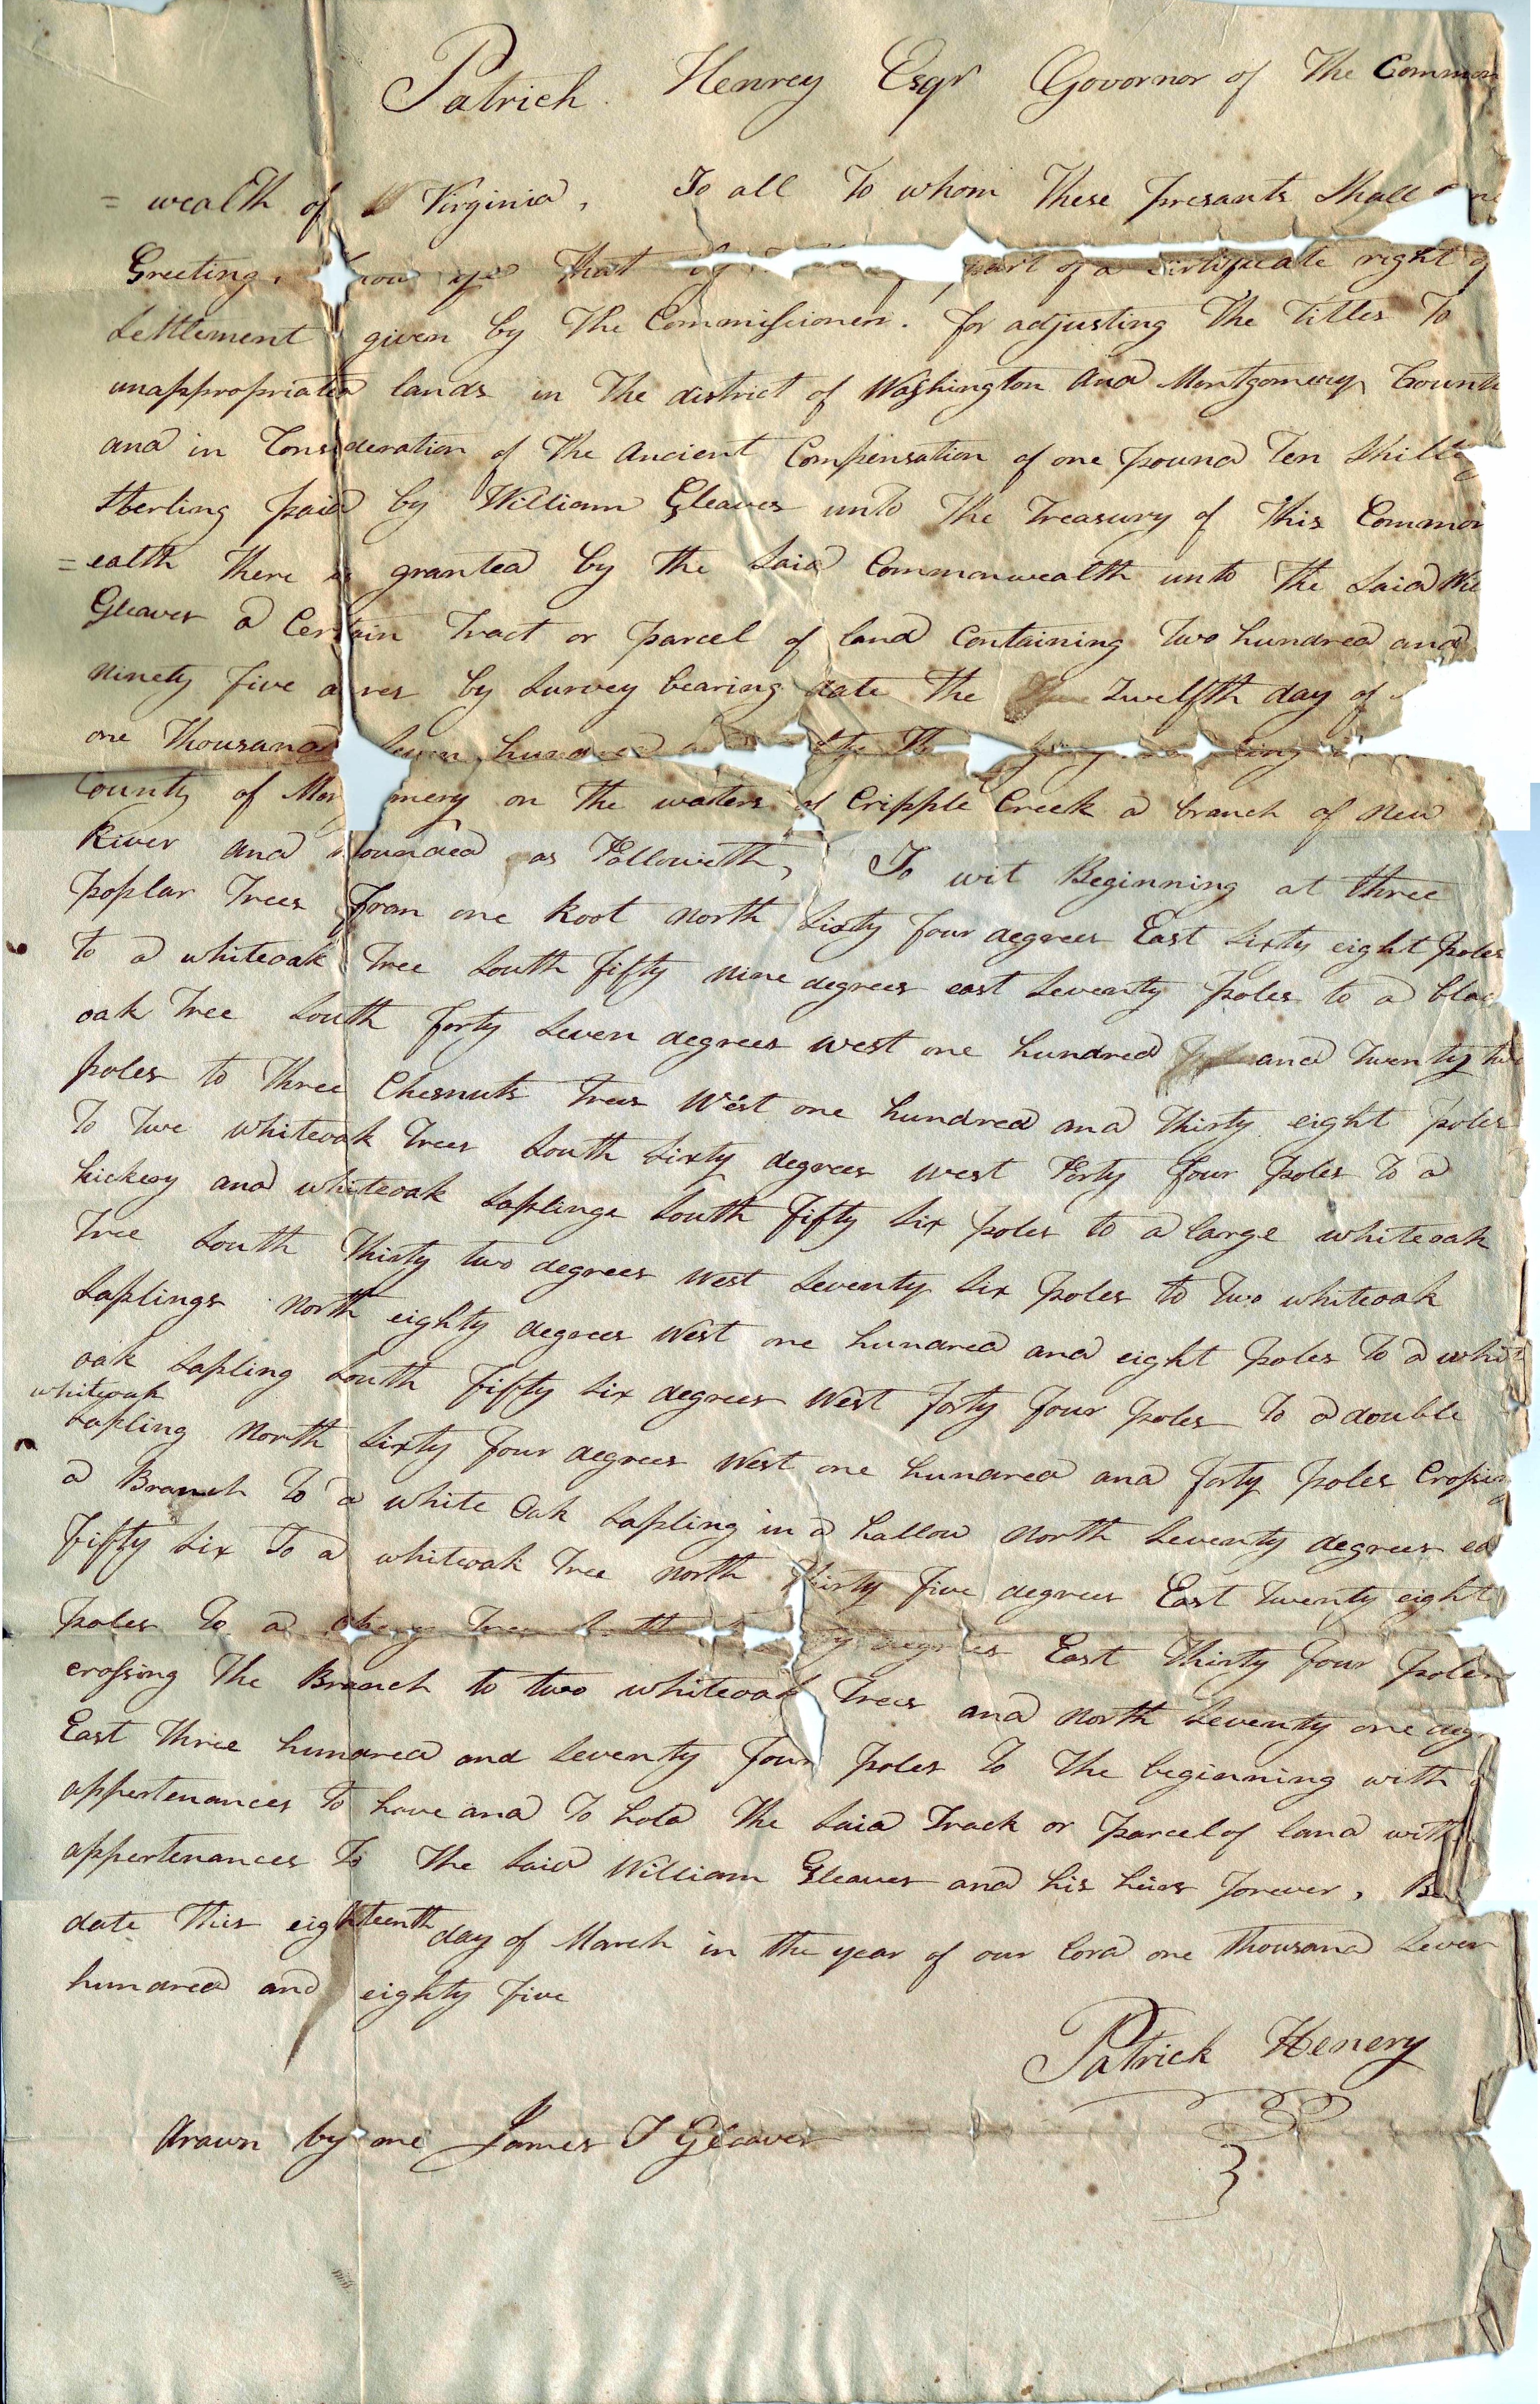 Patrick Henrey Esqr Governor of The Common
= wealth of Virginia, To all To whom These presants Shall
Greeting, know ye That by part of a certificate right of
Settlement given by The Commissioners. for adjusting The Titles To
unappropriated lands in The district of Washington and Montgomery Counti
and in Consideration of The Ancient Compensation of one pound Ten Shilling
Sterling paid by William Gleaves unto The Treasury of This Common
=ealth There is granted by The Said Commonwealth unto The Said Wil
Gleaves a Certain Tract or parcel of land Containing Two hundred and
ninety five acres by Survey bearing date The Twelfth day of
one Thousand Seven hundred
County of Mon mery on The waters of Cripple Creek a branch of New
River and bounded as Followeth, To wit Beginning at three
poplar Trees From one Root north Sixty four degrees East Sixty eight poles
to a whiteoak Tree South fifty nine degrees east Seventy poles to a blac
oak Tree South forty Seven degrees west one hundred and Twenty two
poles to Three Chesnuts Trees West one hundred and Thirty eight poles
To Two whiteoak Trees South Sixty degrees west Forty four poles To a
hickory and whiteoak Saplings South fifty Six poles to a large whiteoak
Tree South Thirty two degrees West Seventy Six poles to Two whiteoak
Saplings North eighty degrees West one hundred and eight poles To a whit
oak Sapling South fifty Six degrees West forty four poles To a double
whiteoak
Sapling North Sixty four degrees West one hundred and forty poles Crossing
a Branch To a white Oak Sapling in a hallow North Seventy degrees ea
fifty Six To a whiteoak Tree north Thirty five degrees East Twenty eight
poles To a Tree degrees East Thirty four poles
crossing The Branch to two whiteoak Trees and North Seventy one deg
East Three hundred and Seventy four poles To The beginning with
appertenances To have and To hold The Said Track or parcel of land with
appertenances To The Said William Gleaves and his heirs forever,
date This eighteenth day of March in the year of our Lord one Thousand Seven
hundred and eighty five
Patrick Henery
Drawn by me James T Gleaves